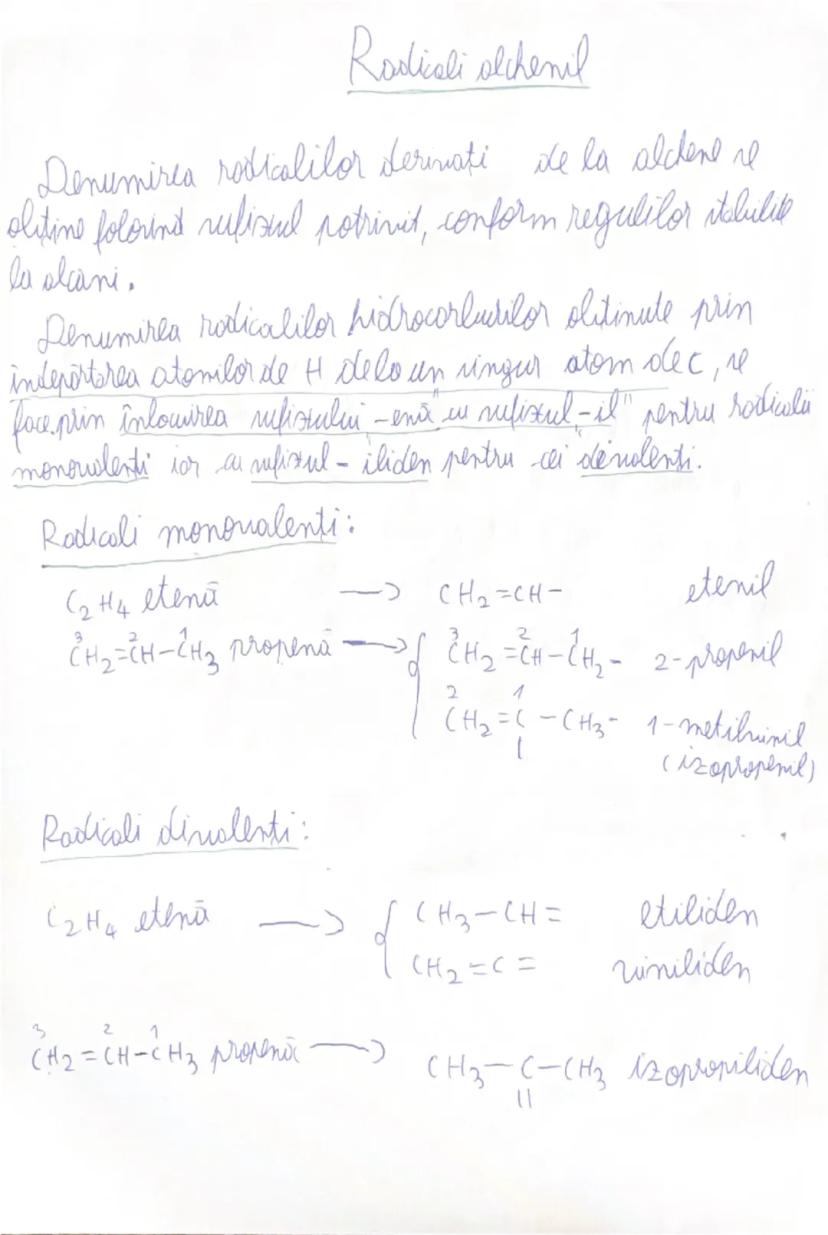 Radicali alchenil
Denumirea radicalilor derivați de la alchene se
obține folosind sufixul potrivit, conform regulilor stabilite
la alcani.
Denumirea radicalilor hidrocarburilor obținute prin
îndepărtarea atomilor de H de la un singur atom de C, se
face prin înlocuirea sufixului -enă" cu sufixul -il" pentru radicalii
monovalenți iar cu sufixul - iliden pentru cei divalenți.
Radicali monovalenți:
C₂H₄ etenă → CH₂=CH- etenil
3 2 1 3 2 1
CH₂=CH-CH₃ propenă → { CH₂=CH-CH₂- 2-propenil
2 1
CH₂=C -CH₃- 1-metilvinil
| (izopropenil)
Radicali divalenți:
C₂H₄ etenă → { CH₃-CH= etiliden
CH₂=C= viniliden
3 2 1
CH₂=CH-CH₃ propenă → CH₃-C-CH₃ izopropiliden
||